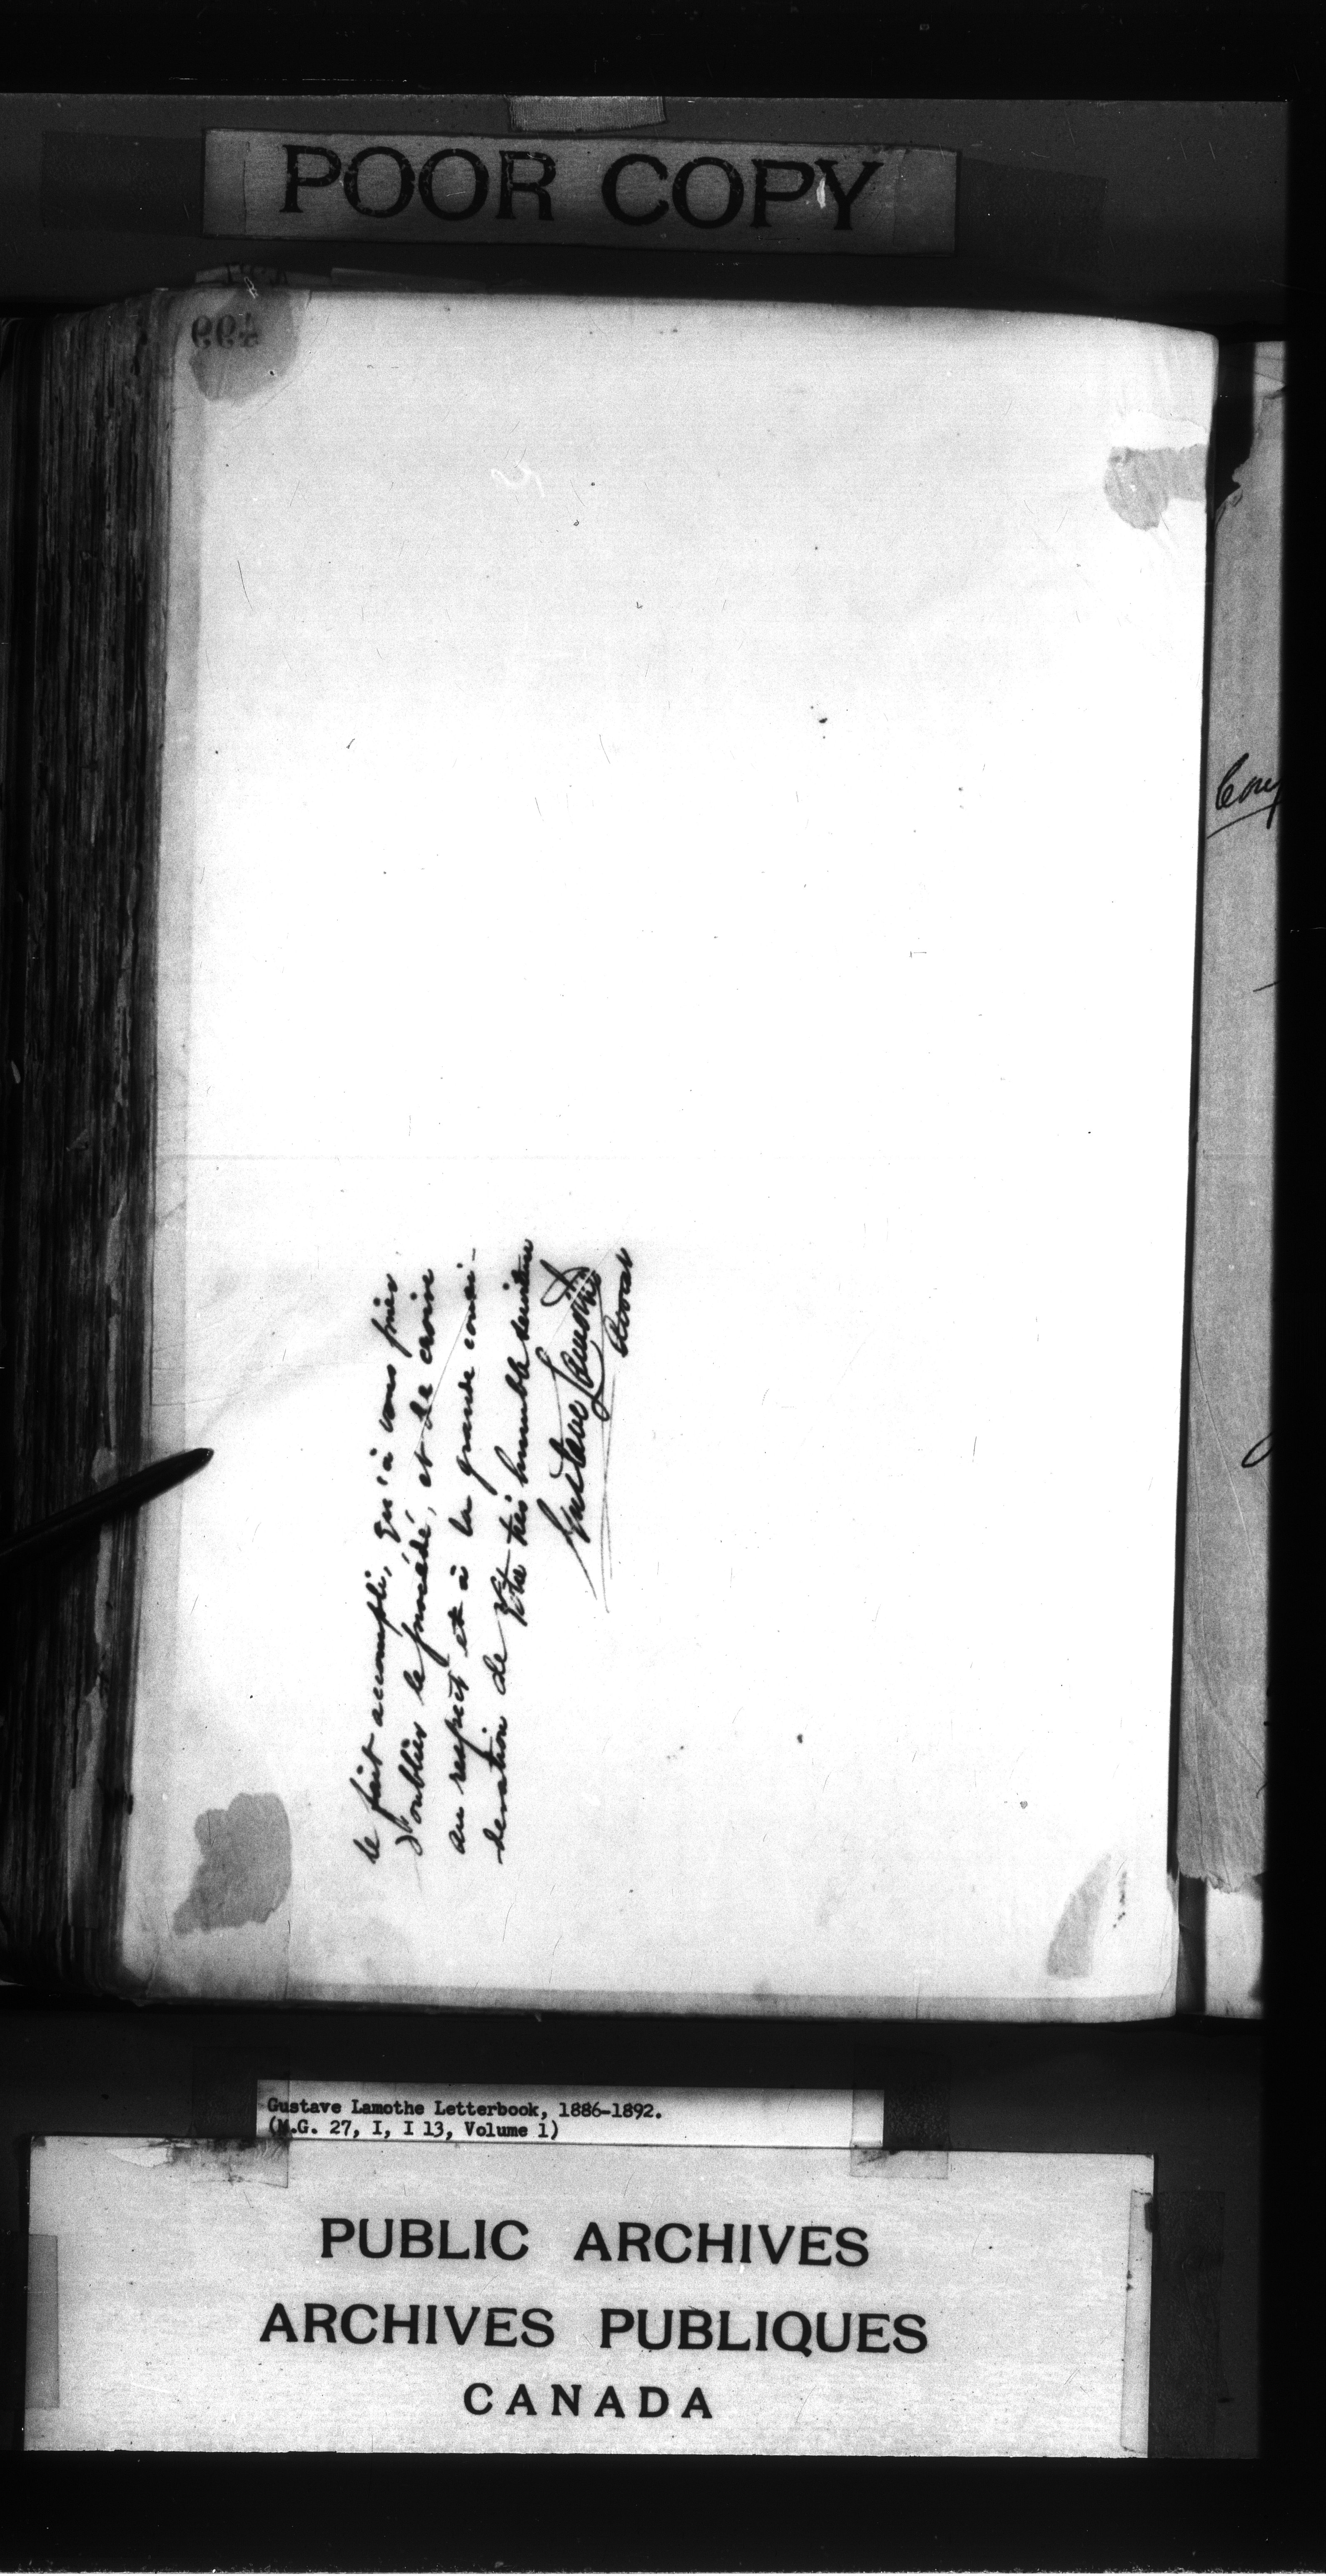 POOR COPY
499
le fait accompli, qu'à vous prier
d'oublier le procédé, et de croire
au respect et à la grande consi-
deration de Vtre très humble serviteur
Gustave Lamothe
Avocat
Gustave Lamothe Letterbook, 1886-1892.
(M.G. 27, I, I 13, Volume 1)
PUBLIC ARCHIVES
ARCHIVES PUBLIQUES
CANADA